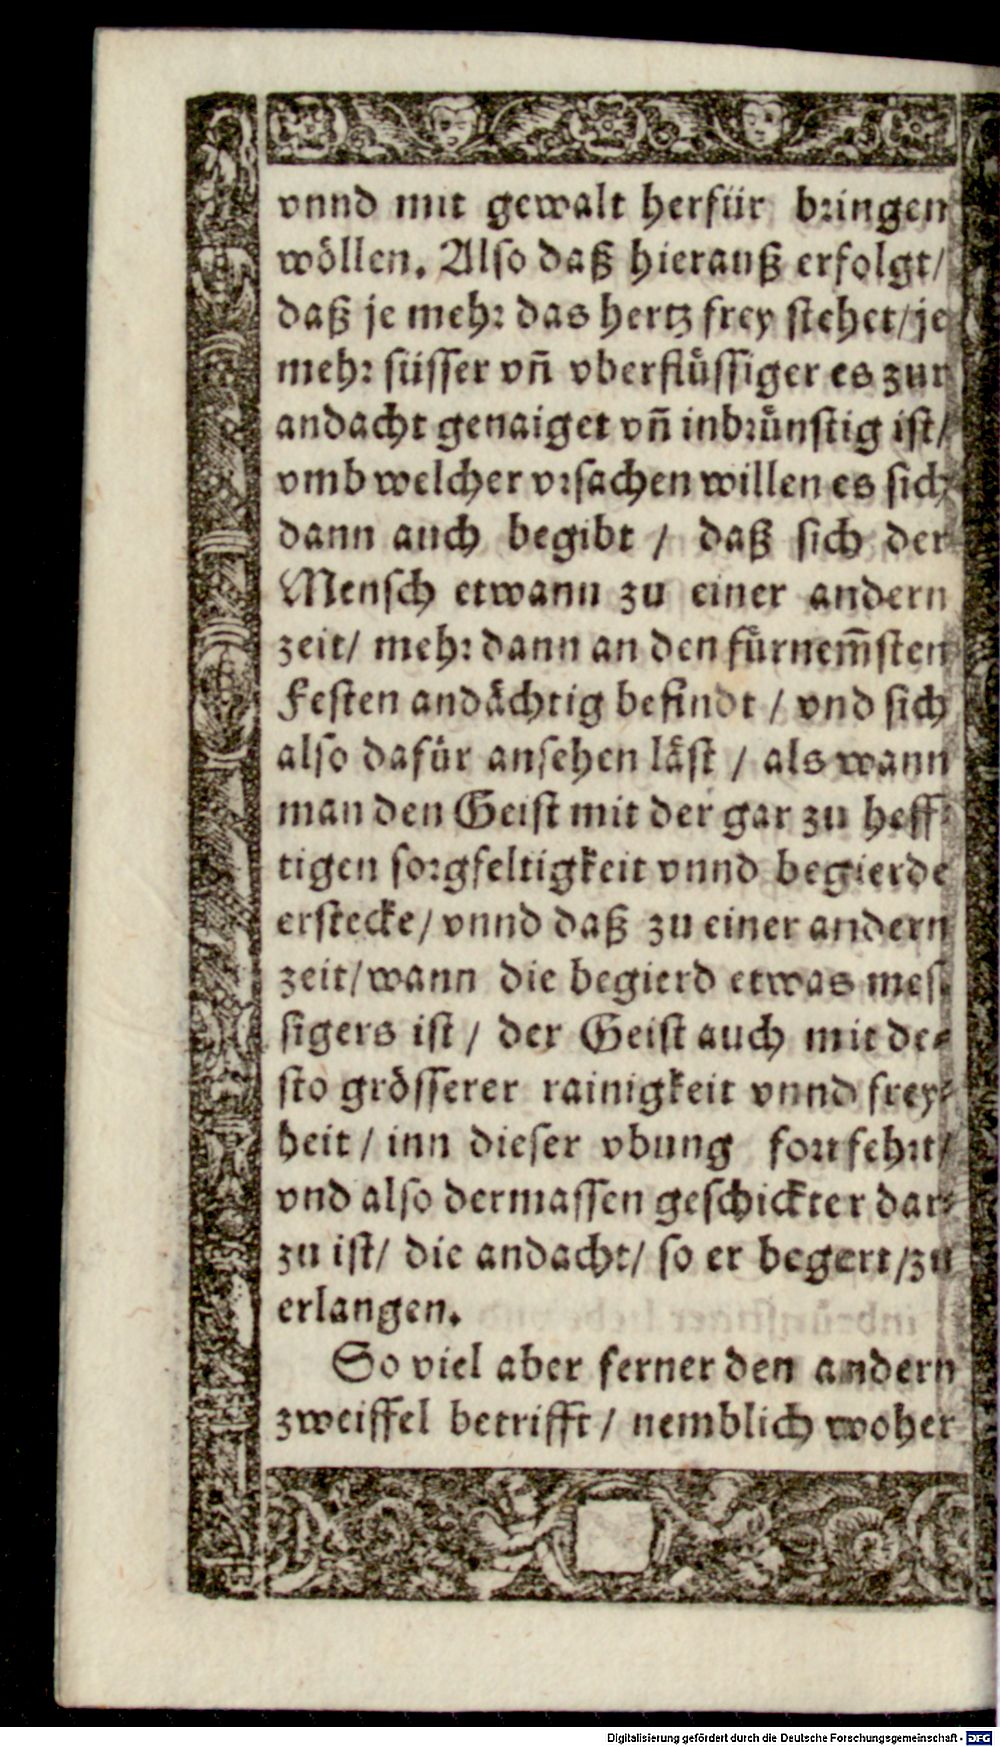 vnnd mit gewalt herfür bringen
wöllen. Also daß hierauß erfolgt/
daß je mehr das hertz frey stehet/je
mehr süsser vñ vberflüssiger es zur
andacht genaiget vñ inbrünstig ist/
vmb welcher vrsachen willen es sich
dann auch begibt / daß sich der
Mensch etwann zu einer andern
zeit/ mehr dann an den fürnem̃sten
Festen andächtig befindt / vnd sich
also dafür ansehen läst / als wann
man den Geist mit der gar zu heff-
tigen sorgfeltigkeit vnnd begierde
erstecke/ vnnd daß zu einer andern
zeit/wann die begierd etwas mes-
sigers ist / der Geist auch mit de-
sto grösserer rainigkeit vnnd frey-
heit / inn dieser vbung fortfehrt/
vnd also dermassen geschickter dar-
zu ist/ die andacht/ so er begert/zu
erlangen.
So viel aber ferner den andern
zweiffel betrifft / nemblich woher
Digitalisierung gefördert durch die Deutsche Forschungsgemeinschaft - DFG